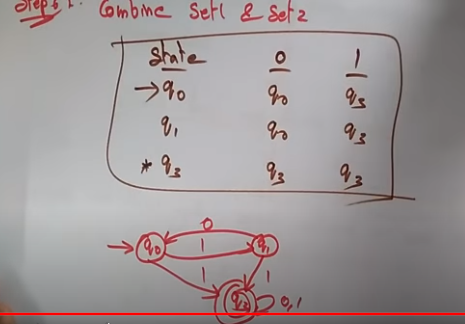 Combine Set1 & Set2
State 0 1
→q0 q0 q3
q1 q0 q3
* q3 q3 q3
0
q0 1 q1
1 1
q3 0,1